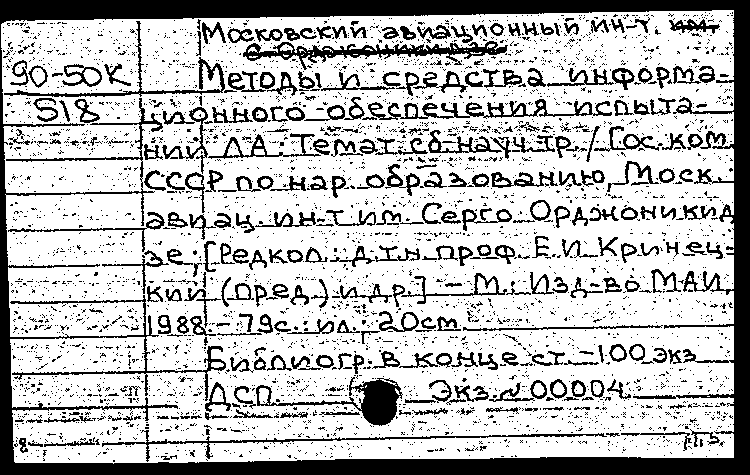 Московский авиационный ин-т. им.
С. Орджоникидзе
90-50К Методы и средства информа-
518 ционного обеспечения испыта-
ний ЛА: Темат. сб. науч. тр. / Гос. ком.
СССР по нар. образованию, Моск.
авиац. ин-т им. Серго Орджоникид
зе; [Редкол.: д.т.н. проф. Е.И. Кринец-
кий (пред.) и др.] - М.: Изд-во МАИ,
1988. - 79с.: ил.; 20см.
Библиогр. в конце ст. - 100 экз
ДСП. Экз. № 00004